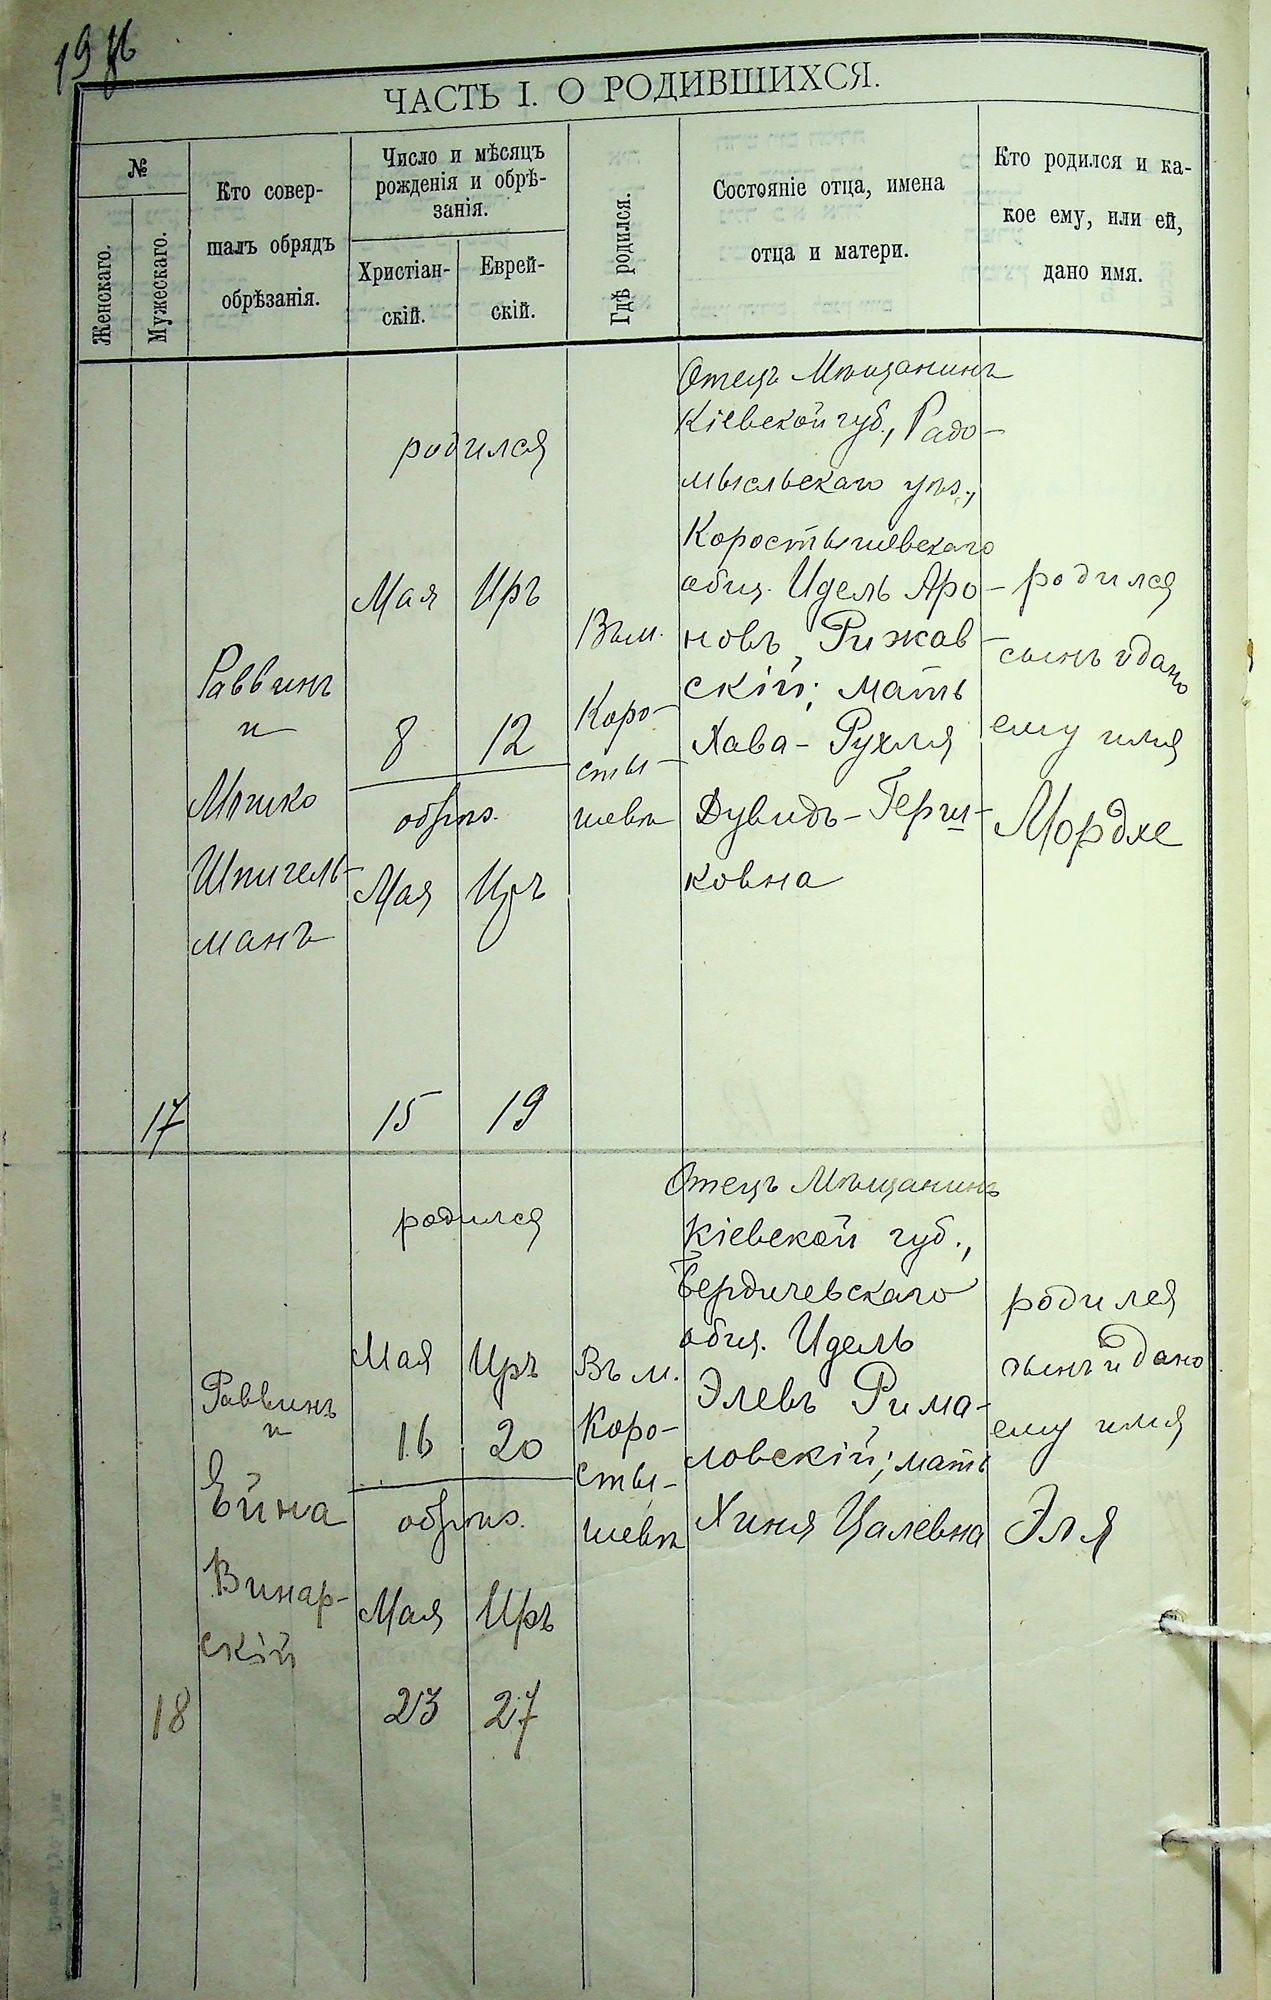 ЧАСТЬ I. О РОДИВШИХСЯ.
№
Женскаго.
Мужескаго.
Кто совер-
шалъ обрядъ
обрѣзанія.
Число и мѣсяцъ
рожденія и обрѣ-
занія.
Христіан-
скій.
Еврей-
скій.
Гдѣ родился.
Состояніе отца, имена
отца и матери.
Кто родился и ка-
кое ему, или ей,
дано имя.
17
Раввинъ
и
Мошко
Шпигель-
манъ
родился
Мая Иръ
8 12
обрѣз.
Мая Иръ
15 19
Въ м.
Коро-
сты-
шевѣ
Отецъ Мѣщанинъ
Кіевской губ., Радо-
мысльскаго уѣз.,
Коростышевскаго
общ. Идель Аро-
новъ Рижав-
скій; мать
Хава-Рухля
Дувидъ-Герш-
ковна
родился
сынъ и дано
ему имя
Мордхе
18
Раввинъ
и
Ейна
Винар-
скій
родился
Мая Иръ
16 20
обрѣз.
Мая Иръ
23 27
Въ м.
Коро-
сты-
шевѣ
Отецъ Мѣщанинъ
Кіевской губ.,
Бердичевскаго
общ. Идель
Элевъ Рима-
ловскій; мать
Хиня Цалевна
родился
сынъ и дано
ему имя
Эля